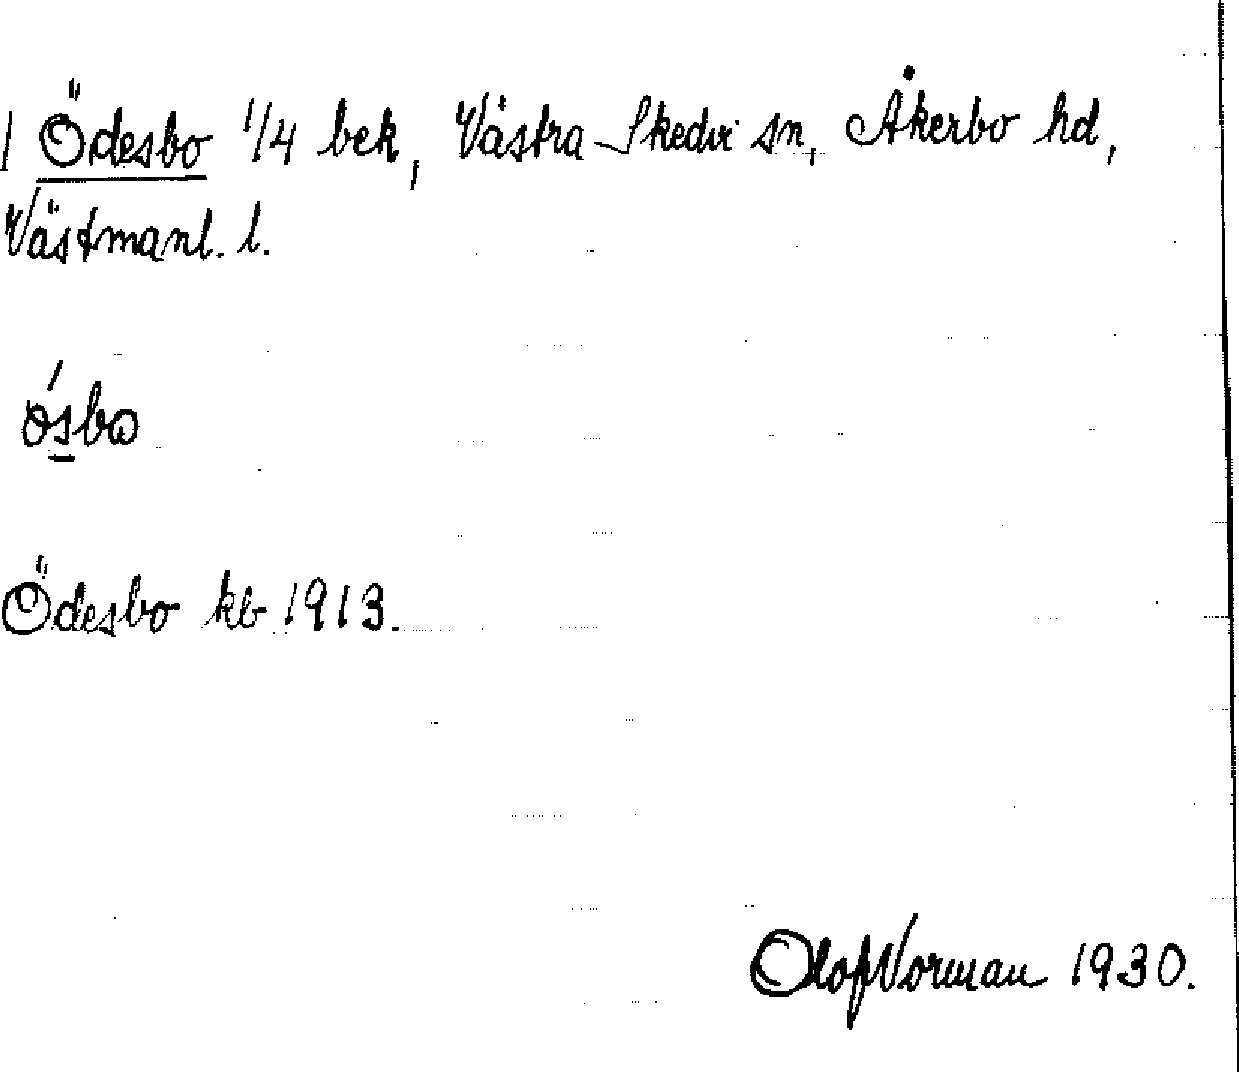 | Ödesbo 1/4 bek, Västra Skedvi sn, Åkerbo hd,
Västmanl. l.
ósbo
Ödesbo kb 1913.
Olof Norman 1930.